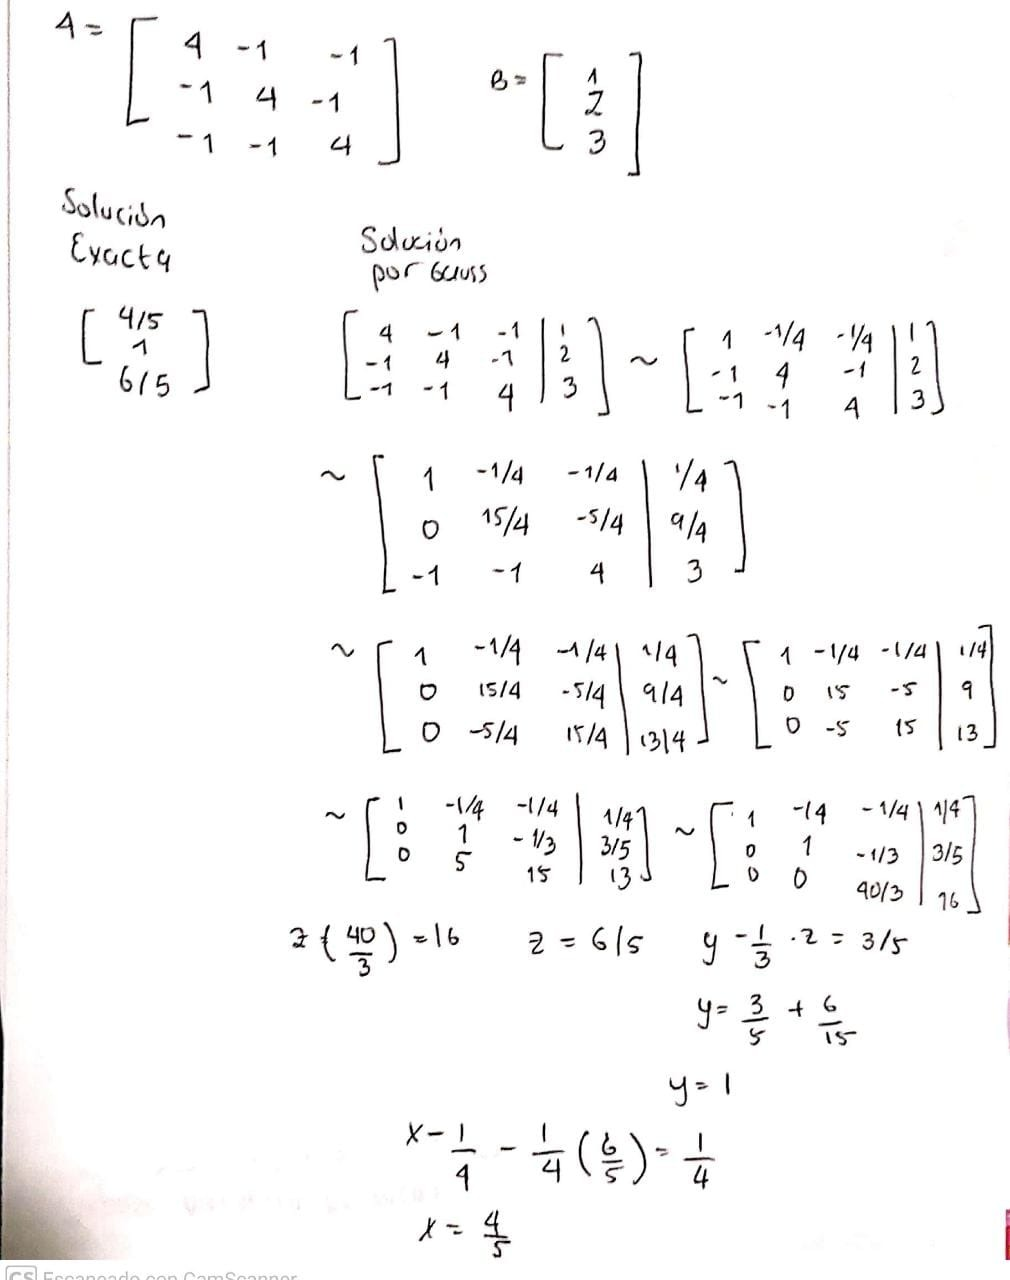 A = [ 4 -1 -1
-1 4 -1
-1 -1 4 ]
B = [ 1
2
3 ]
Solución
Exacta
[ 4/5
1
6/5 ]
Solución
por Gauss
[ 4 -1 -1 | 1
-1 4 -1 | 2
-1 -1 4 | 3 ]
~ [ 1 -1/4 -1/4 | 1
-1 4 -1 | 2
-1 -1 4 | 3 ]
~ [ 1 -1/4 -1/4 | 1/4
0 15/4 -5/4 | 9/4
-1 -1 4 | 3 ]
~ [ 1 -1/4 -1/4 | 1/4
0 15/4 -5/4 | 9/4
0 -5/4 15/4 | 13/4 ]
~ [ 1 -1/4 -1/4 | 1/4
0 15 -5 | 9
0 -5 15 | 13 ]
~ [ 1 -1/4 -1/4 | 1/4
0 1 -1/3 | 3/5
0 5 15 | 13 ]
~ [ 1 -14 -1/4 | 1/4
0 1 -1/3 | 3/5
0 0 40/3 | 16 ]
z (40/3) = 16
z = 6/5
y - 1/3 · z = 3/5
y = 3/5 + 6/15
y = 1
x - 1/4 - 1/4 (6/5) = 1/4
x = 4/5
CS Escaneado con CamScanner